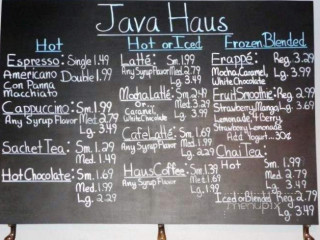 Java Haus
Hot
Espresso: Single 1.49
Americano Double 1.99
Con Panna
Macchiato
Cappuccino: Sm. 1.99
Any Syrup Flavor Med. 2.79
Lg. 3.49
Sachet Tea: Sm. 1.29
Med. 1.49
Hot Chocolate: Sm. 1.69
Med. 1.99
Lg. 2.29
Hot or Iced
Latté: Sm. 1.99
Any Syrup Flavor Med. 2.79
Lg. 3.49
Mocha Latté: Sm. 2.49
Or Med. 3.29
Caramel, Lg. 3.99
White Chocolate
Cafe Latté: Sm. 1.49
Any Syrup Flavor Med. 1.99
Lg. 2.29
Haus Coffee: Sm. 1.39
Any Syrup Flavor Med. 1.69
Lg. 1.99
Frozen Blended
Frappé: Reg. 3.29
Mocha, Caramel, Lg. 3.99
White Chocolate
Fruit Smoothie: Reg. 2.99
Strawberry, Mango Lg. 3.69
Strawberry Lemonade
Lemonade, 4 Berry
Add Yogurt... 30¢
Chai Tea:
Hot Sm. 1.99
Med. 2.79
Lg. 3.49
Iced or Blended Reg. 2.79
Lg. 3.49
menupix